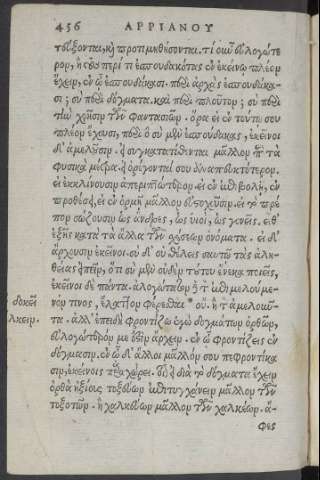 456 ΑΡΡΙΑΝΟΥ
τεύξονται, κὴ προτιμηθήσονται. τί οὖν εὐλογώτε
ρον, ἢ τοὺς περί τι ἐσπουδακότας ἐν ἐκείνῳ πλέον
ἔχειν, ἐν ᾧ ἐσπουδάκασι. περὶ ἀρχὰς ἐσπουδάκα-
σι; σὺ περὶ δόγματα. καὶ περὶ πλοῦτον; σὺ περὶ
τὴν χρῆσιν τῶν φαντασιῶν. ὅρα εἰ ἐν τούτῳ σου
πλέον ἔχουσι, περὶ ὃ σὺ μὲν ἐσπούδακας, ἐκεῖνοι
δ' ἀμελοῦσιν. ἢ συγκατατίθενται μᾶλλον περὶ τὰ
φυσικὰ μέτρα. ἢ ὀρέγονταί σου
εἰ ἐκκλίνουσιν ἀπεριπτωτότερον. εἰ ἐν ἐπιβολῇ, ἐν
προθέσει, ἢ ἐν ὁρμῇ μᾶλλον εὐστοχοῦσιν. εἰ τὸ πρέ
πον σώζουσιν ὡς ἄνδρες, ὡς υἱοί, ὡς γονεῖς. εἶθ'
ἑξῆς κατὰ τὰ ἄλλα τῶν σχέσεων ὀνόματα. εἰ δ'
ἄρχουσιν ἐκεῖνοι. σὺ δ' οὐ θέλεις σαυτῷ τὰς ἀλη-
θείας εἰπεῖν, ὅτι σὺ μὲν οὐδὲν τούτου ἕνεκα ποιεῖς,
ἐκεῖνοι δὲ πάντα. ἀλογώτατον ἢ τὸν ἐπιμελούμε-
νόν τινος, ἔλαττον φέρεσθαι * οὔ. ἢ τὸν ἀμελοῦν-
τα. ἀλλ' ἐπειδὴ φροντίζω ἐγὼ δογμάτων ὀρθῶν,
εὐλογώτερόν με ἐστὶν ἄρχειν. ἐν ᾧ φροντίζεις ἐν
δόγμασιν. ἐν ᾧ δ' ἄλλοι μᾶλλόν σου πεφροντίκα
σιν, ἐκείνοις παραχώρει. οἷον διὰ τὸ δόγματα ἔχειν
ὀρθὰ ἠξίους τοξεύων ἐπιτυγχάνειν μᾶλλον τῶν
τοξοτῶν. ἢ χαλκεύων μᾶλλον τῶν χαλκέων. ἄ-
φες
δοκεῖ
λκειν.